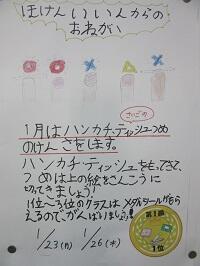 ほけんいいんからの
おねがい
さいごの
1月はハンカチ、ティッシュ、つめ
のけんさをします。
ハンカチ・ティッシュをもってきて、
つめは上の絵をさんこうに
切ってきましょう!
1位~3位のクラスはメダルシールがもら
えるので、がんばりましょう!!
第1回
1位
1/23(月) 1/26(木)